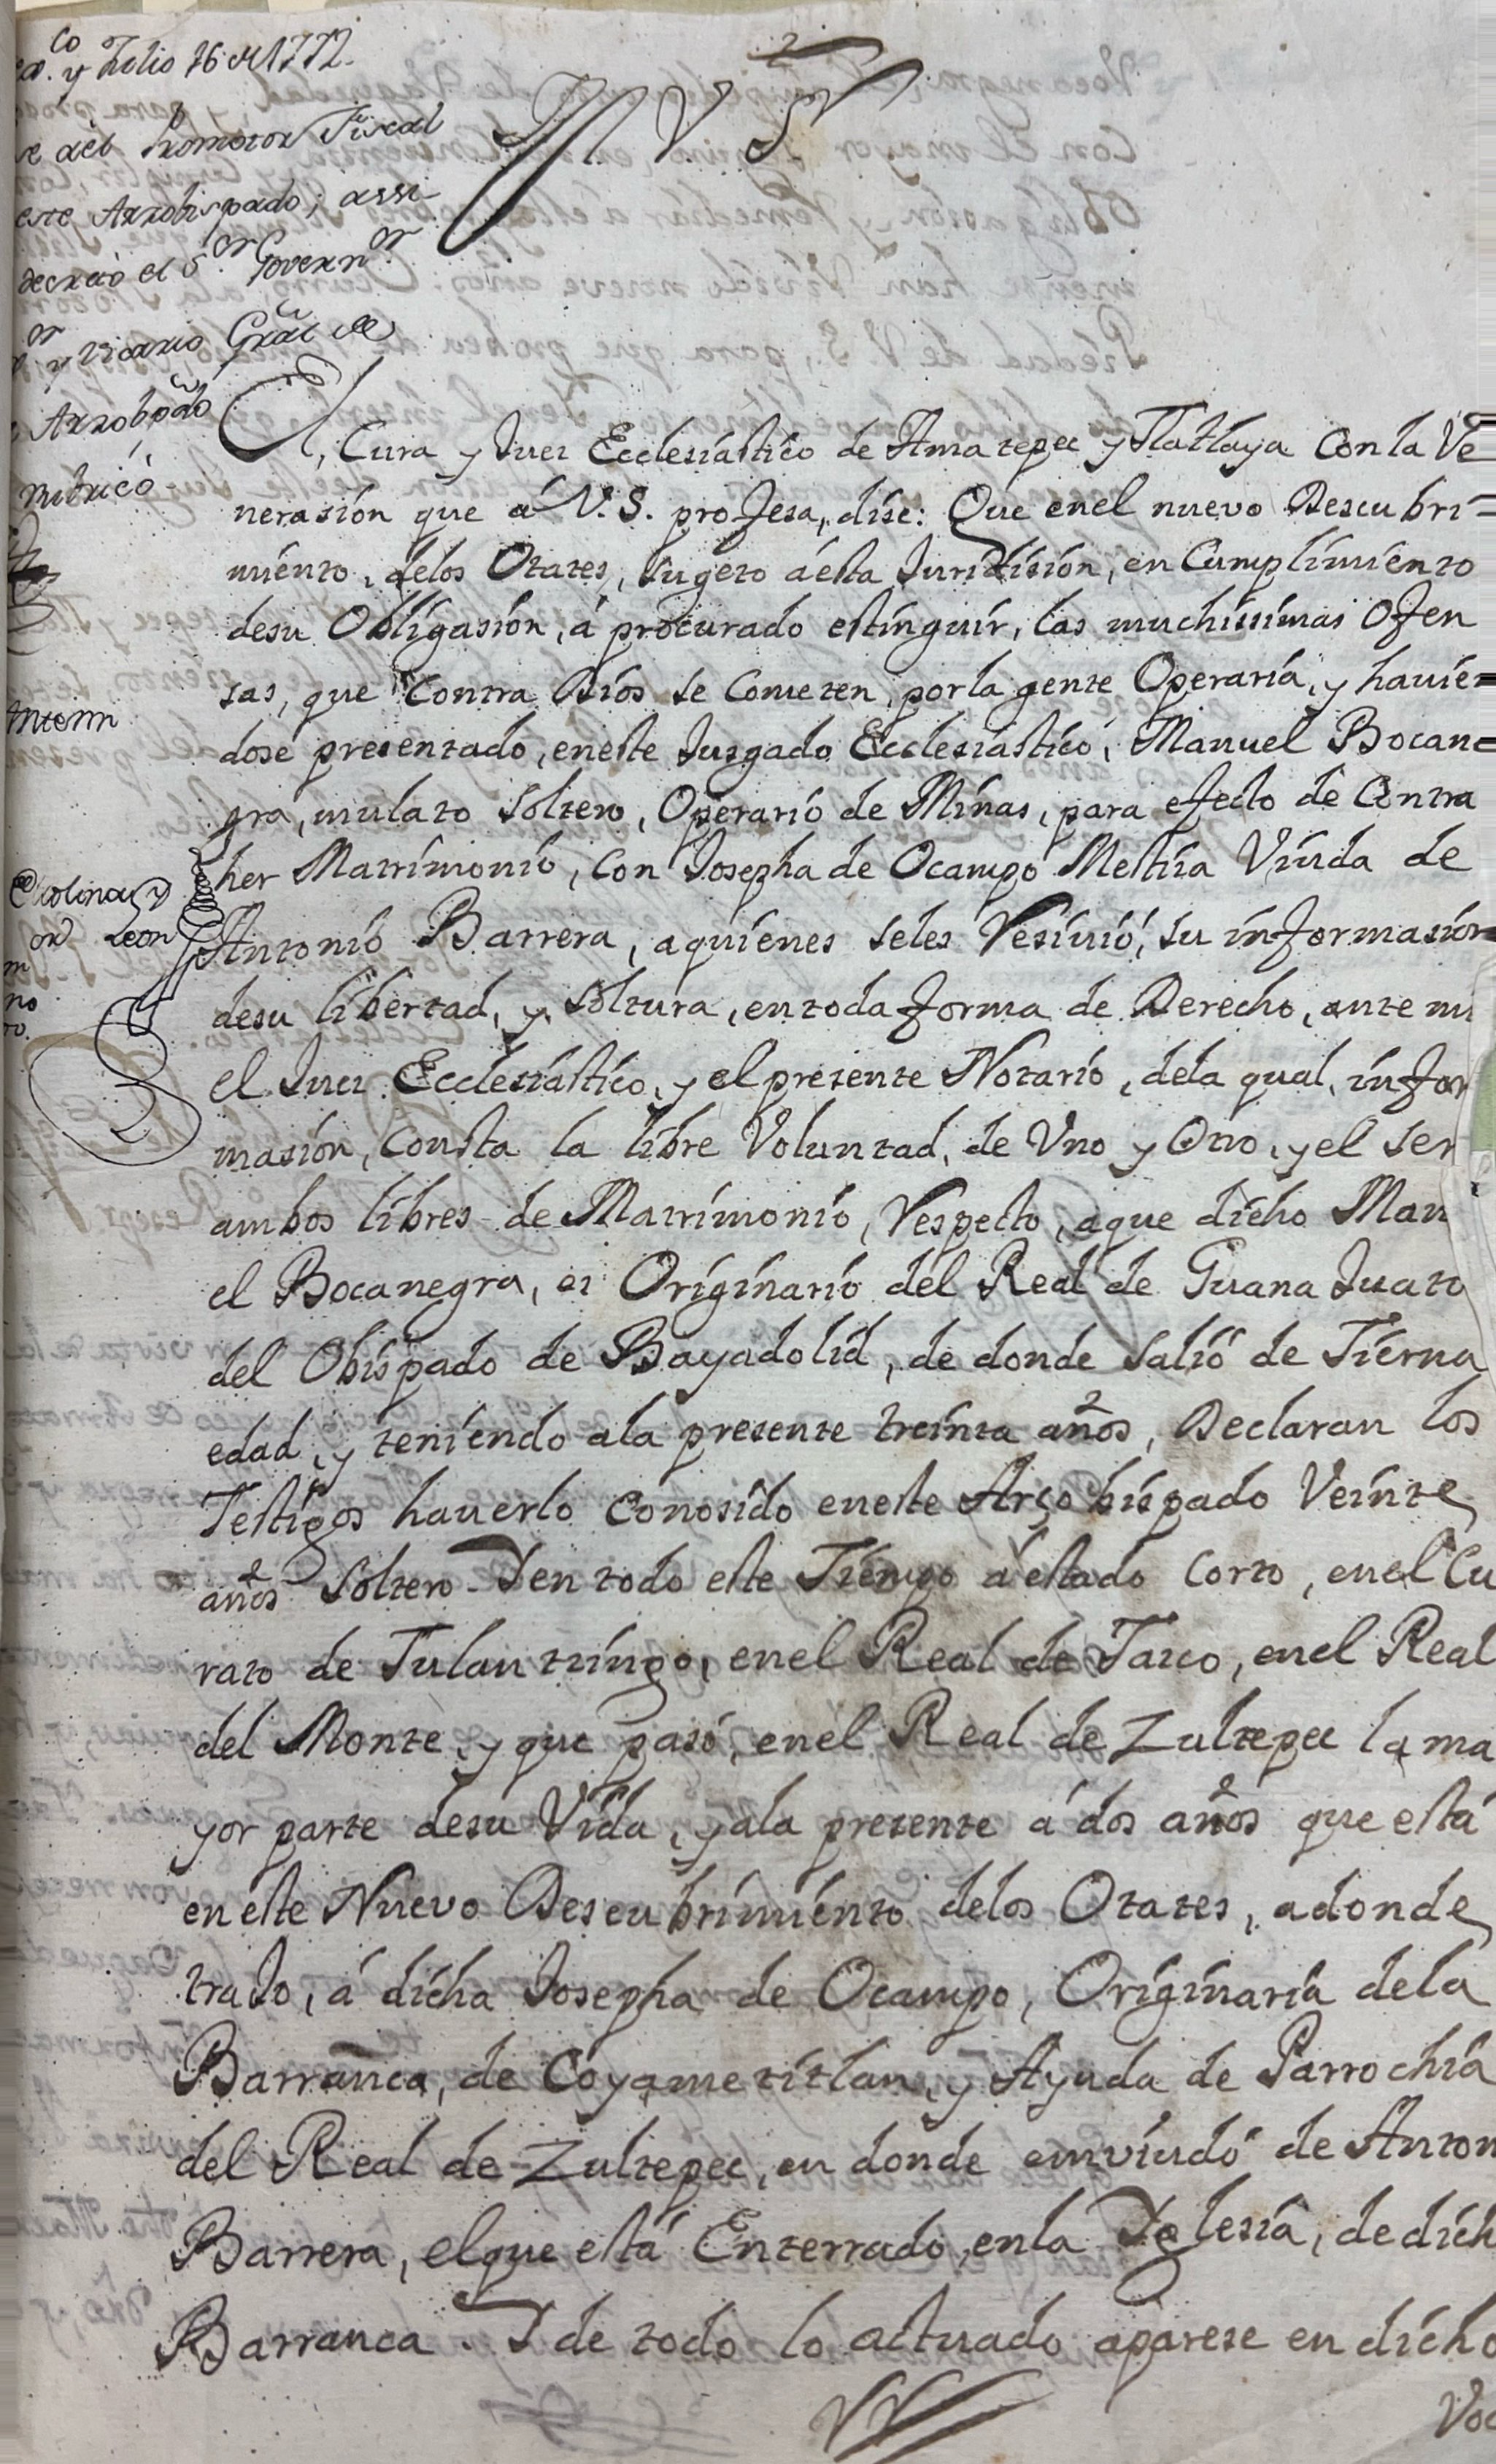 co
y Julio 16 de 1772.
e del Promotor Fiscal
este Arzobispado; assi
decretó el Sor. Governor.
or
y Vicario Gral de
Arzobpdo
rubricó
Antemi
or Leon
M. Y. Sr.
El, Cura y Juez Ecclesiástico de Amatepec y Tlatlaya Con la Ve=
nerasión que á V.S. profesa, dise: Que enel nuevo Descubri=
miento, delos Otates, sugeto áesta Juridisión, en Cumplimiento
desu Obligasión, á procurado estinguir, las muchissimas Ofen
sas, que Contra Dios se Cometen, porla gente Operaria, y havien=
dose presentado, eneste Jusgado Ecclesiástico, Manuel Bocane=
gra, mulato Soltero, Operario de Minas, para efecto de Contra
her Matrimonio, Con Josepha de Ocampo Mestiza Viuda de
Antonio Barrera, aquienes seles Resivió, su informasión
desu libertad, y Soltura, entoda forma de Derecho, ante mi
el Juez Ecclesiástico, y el presente Notario, dela qual, infor
masión, Consta la libre Voluntad, de Uno y Otro, y el ser
ambos libres de Matrimonio, Respecto, aque dicho Manu
el Bocanegra, es Originario del Real de GuanaJuato
del Obispado de Bayadolid, de donde Salió de Tierna
edad, y teniendo ala presente treinta años, Declaran los
Testigos haverlo Conosido eneste Arçobispado Veinte
años Soltero. Y en todo este Tiempo á estado Corto, enel Cu
rato de Tulantzingo, enel Real de Tasco, enel Real
del Monte, y que pasó, enel Real de Zultepec la ma
yor parte desu Vida, y ala presente á dos años que está
eneste Nuevo Descubrimiento delos Otates, adonde
traJo, á dicha Josepha de Ocampo, Originaria dela
Barranca, de Coyametitlan, y Ayuda de Parrochia
del Real de Zultepec, en donde enviudó de Anton
Barrera, elque está Enterrado, enla Yglesia, de dich
Barranca. Y de todo lo actuado aparese en dicho
Voc